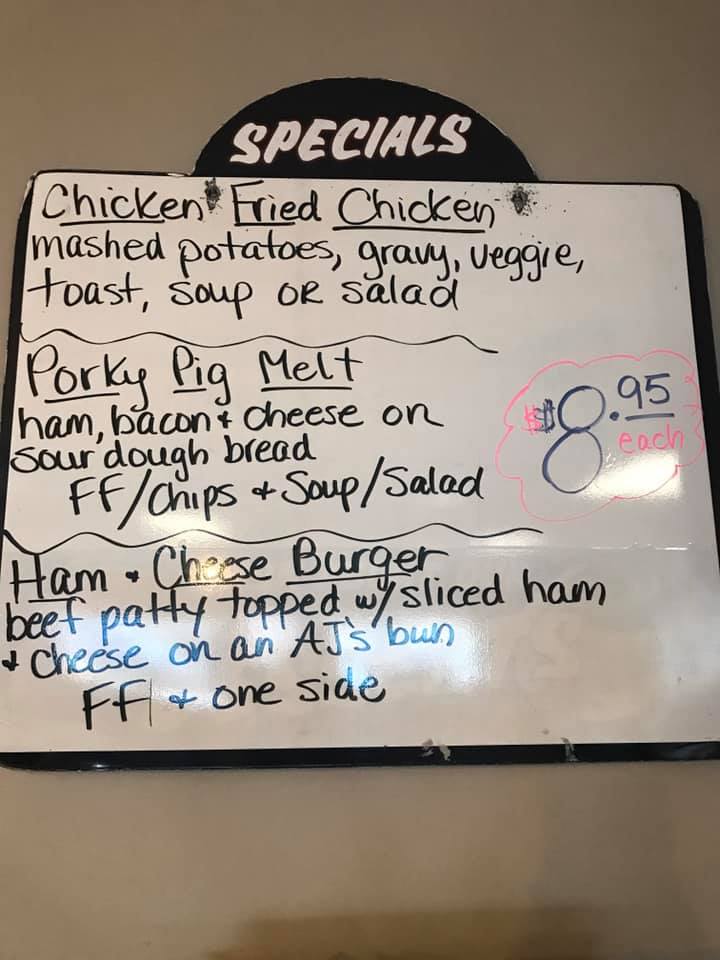 SPECIALS
Chicken Fried Chicken
mashed potatoes, gravy, veggie,
toast, soup OR salad
Porky Pig Melt
ham, bacon & cheese on
sourdough bread
FF/Chips & Soup/Salad
$8.95
each
Ham & Cheese Burger
beef patty topped w/ sliced ham
& cheese on an AJ's bun
FF & one side